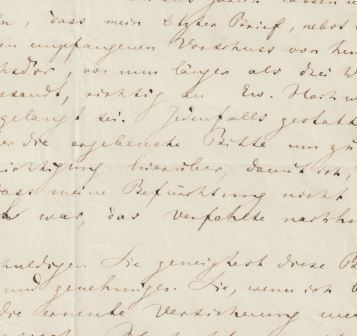 dass mein letzter Brief, nebst
empfangenen Vorschuss von
vor nun länger als drei
richtig an Ew. Hoch
gelangt sei. Jedenfalls gestatt
die ergebenste Bitte um gü
ichtigung hierüber, damit ich,
dass meine Befürchtung nicht
war, das Verfehlte nachho
huldigen Sie geneigtest diese B
und genehmigen Sie, wenn ich
die erneute Versicherung mei